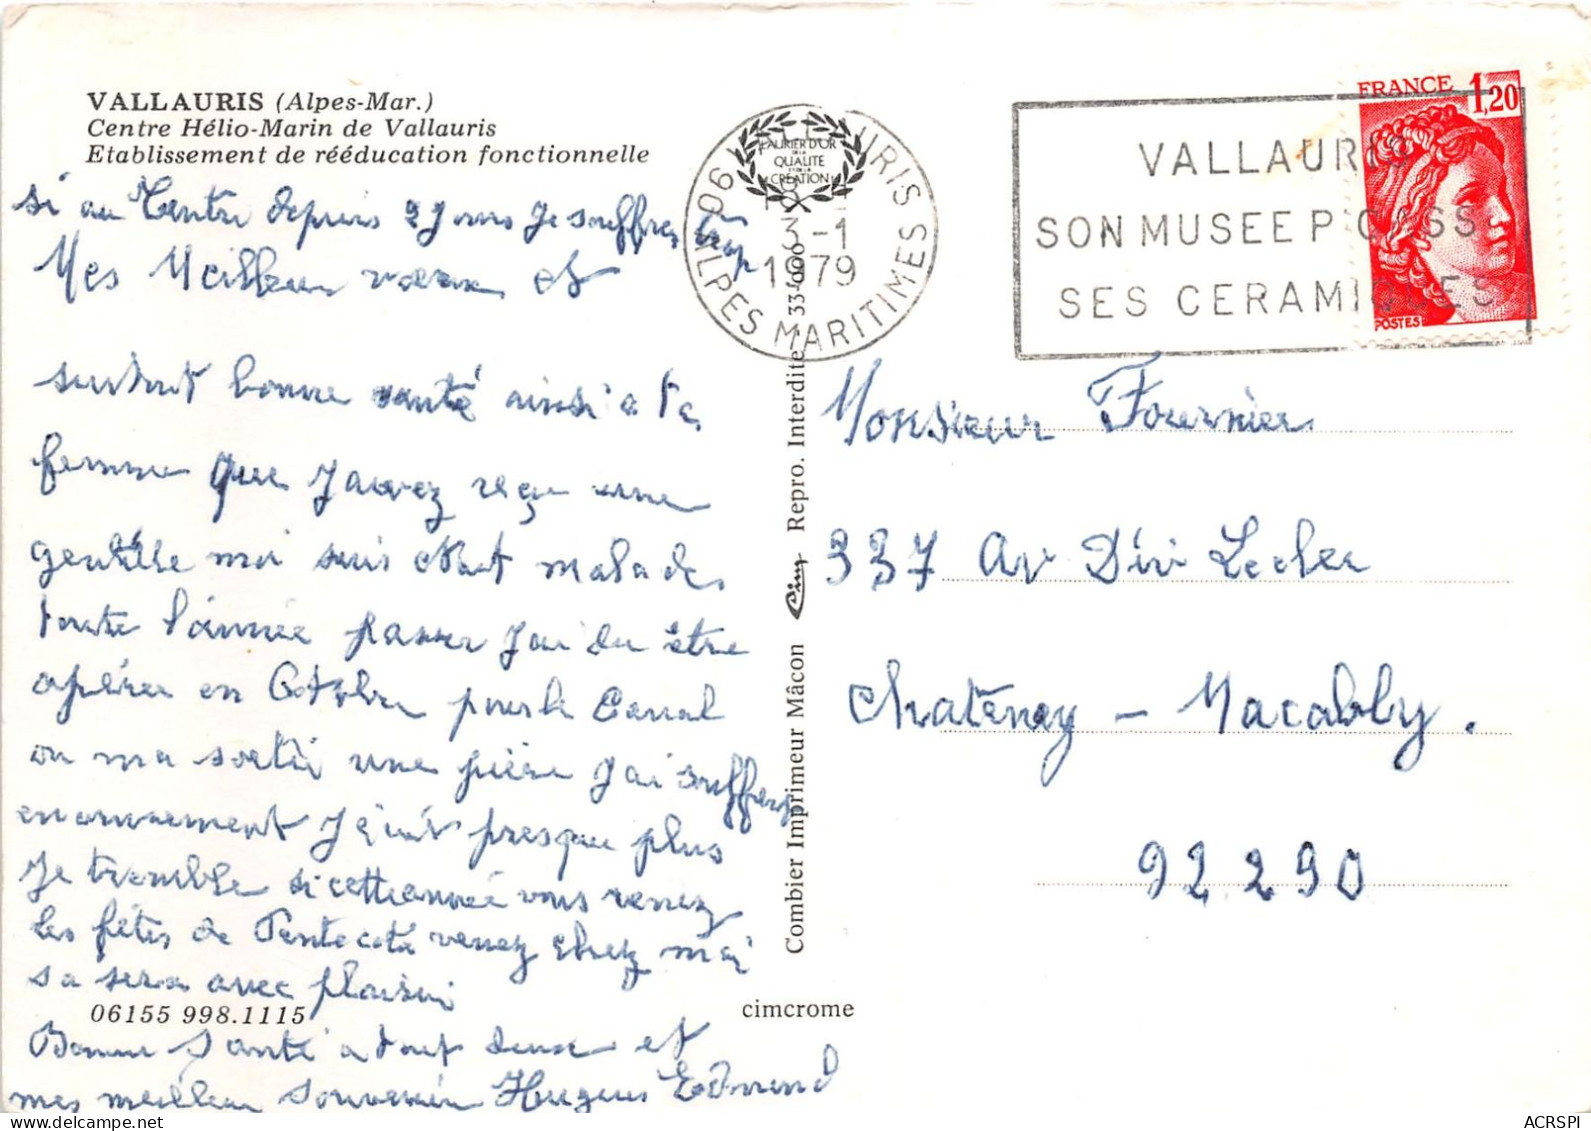 VALLAURIS (Alpes-Mar.)
Centre Hélio-Marin de Vallauris
Etablissement de rééducation fonctionnelle
si au Centre depuis 2 jours je souffres trop
Mes Meilleur vœux et
surtout bonne santé ainsi a ta
femme que J'avez reçu une
gentille moi suis etait malades
toute l'année passer J'ai du être
opérer en Octobre pour le Canal
on ma sortir une pière J'ai souffers
enormement J'écrit presque plus
Je tremble si cette année vous venez
les fêtes de Pentecoté venez chez moi
sa sera avec plaisir
06155 998.1115
Bonne Santé a tout deux et
mes meilleur souvenir Hugues Edmond
LAURIER D'OR
DE LA
QUALITÉ
ET DE LA
CRÉATION
06 VALLAURIS
3-1
1979
ALPES MARITIMES
VALLAURIS
SON MUSEE PICASSO
SES CERAMIQUES
FRANCE 1,20
POSTES
Combier Imprimeur Mâcon Cim Repro. Interdite
cimcrome
Monsieur Fournier
337 Av Divi Lecler
Chatenay - Macabby.
92.290
ACRSPI